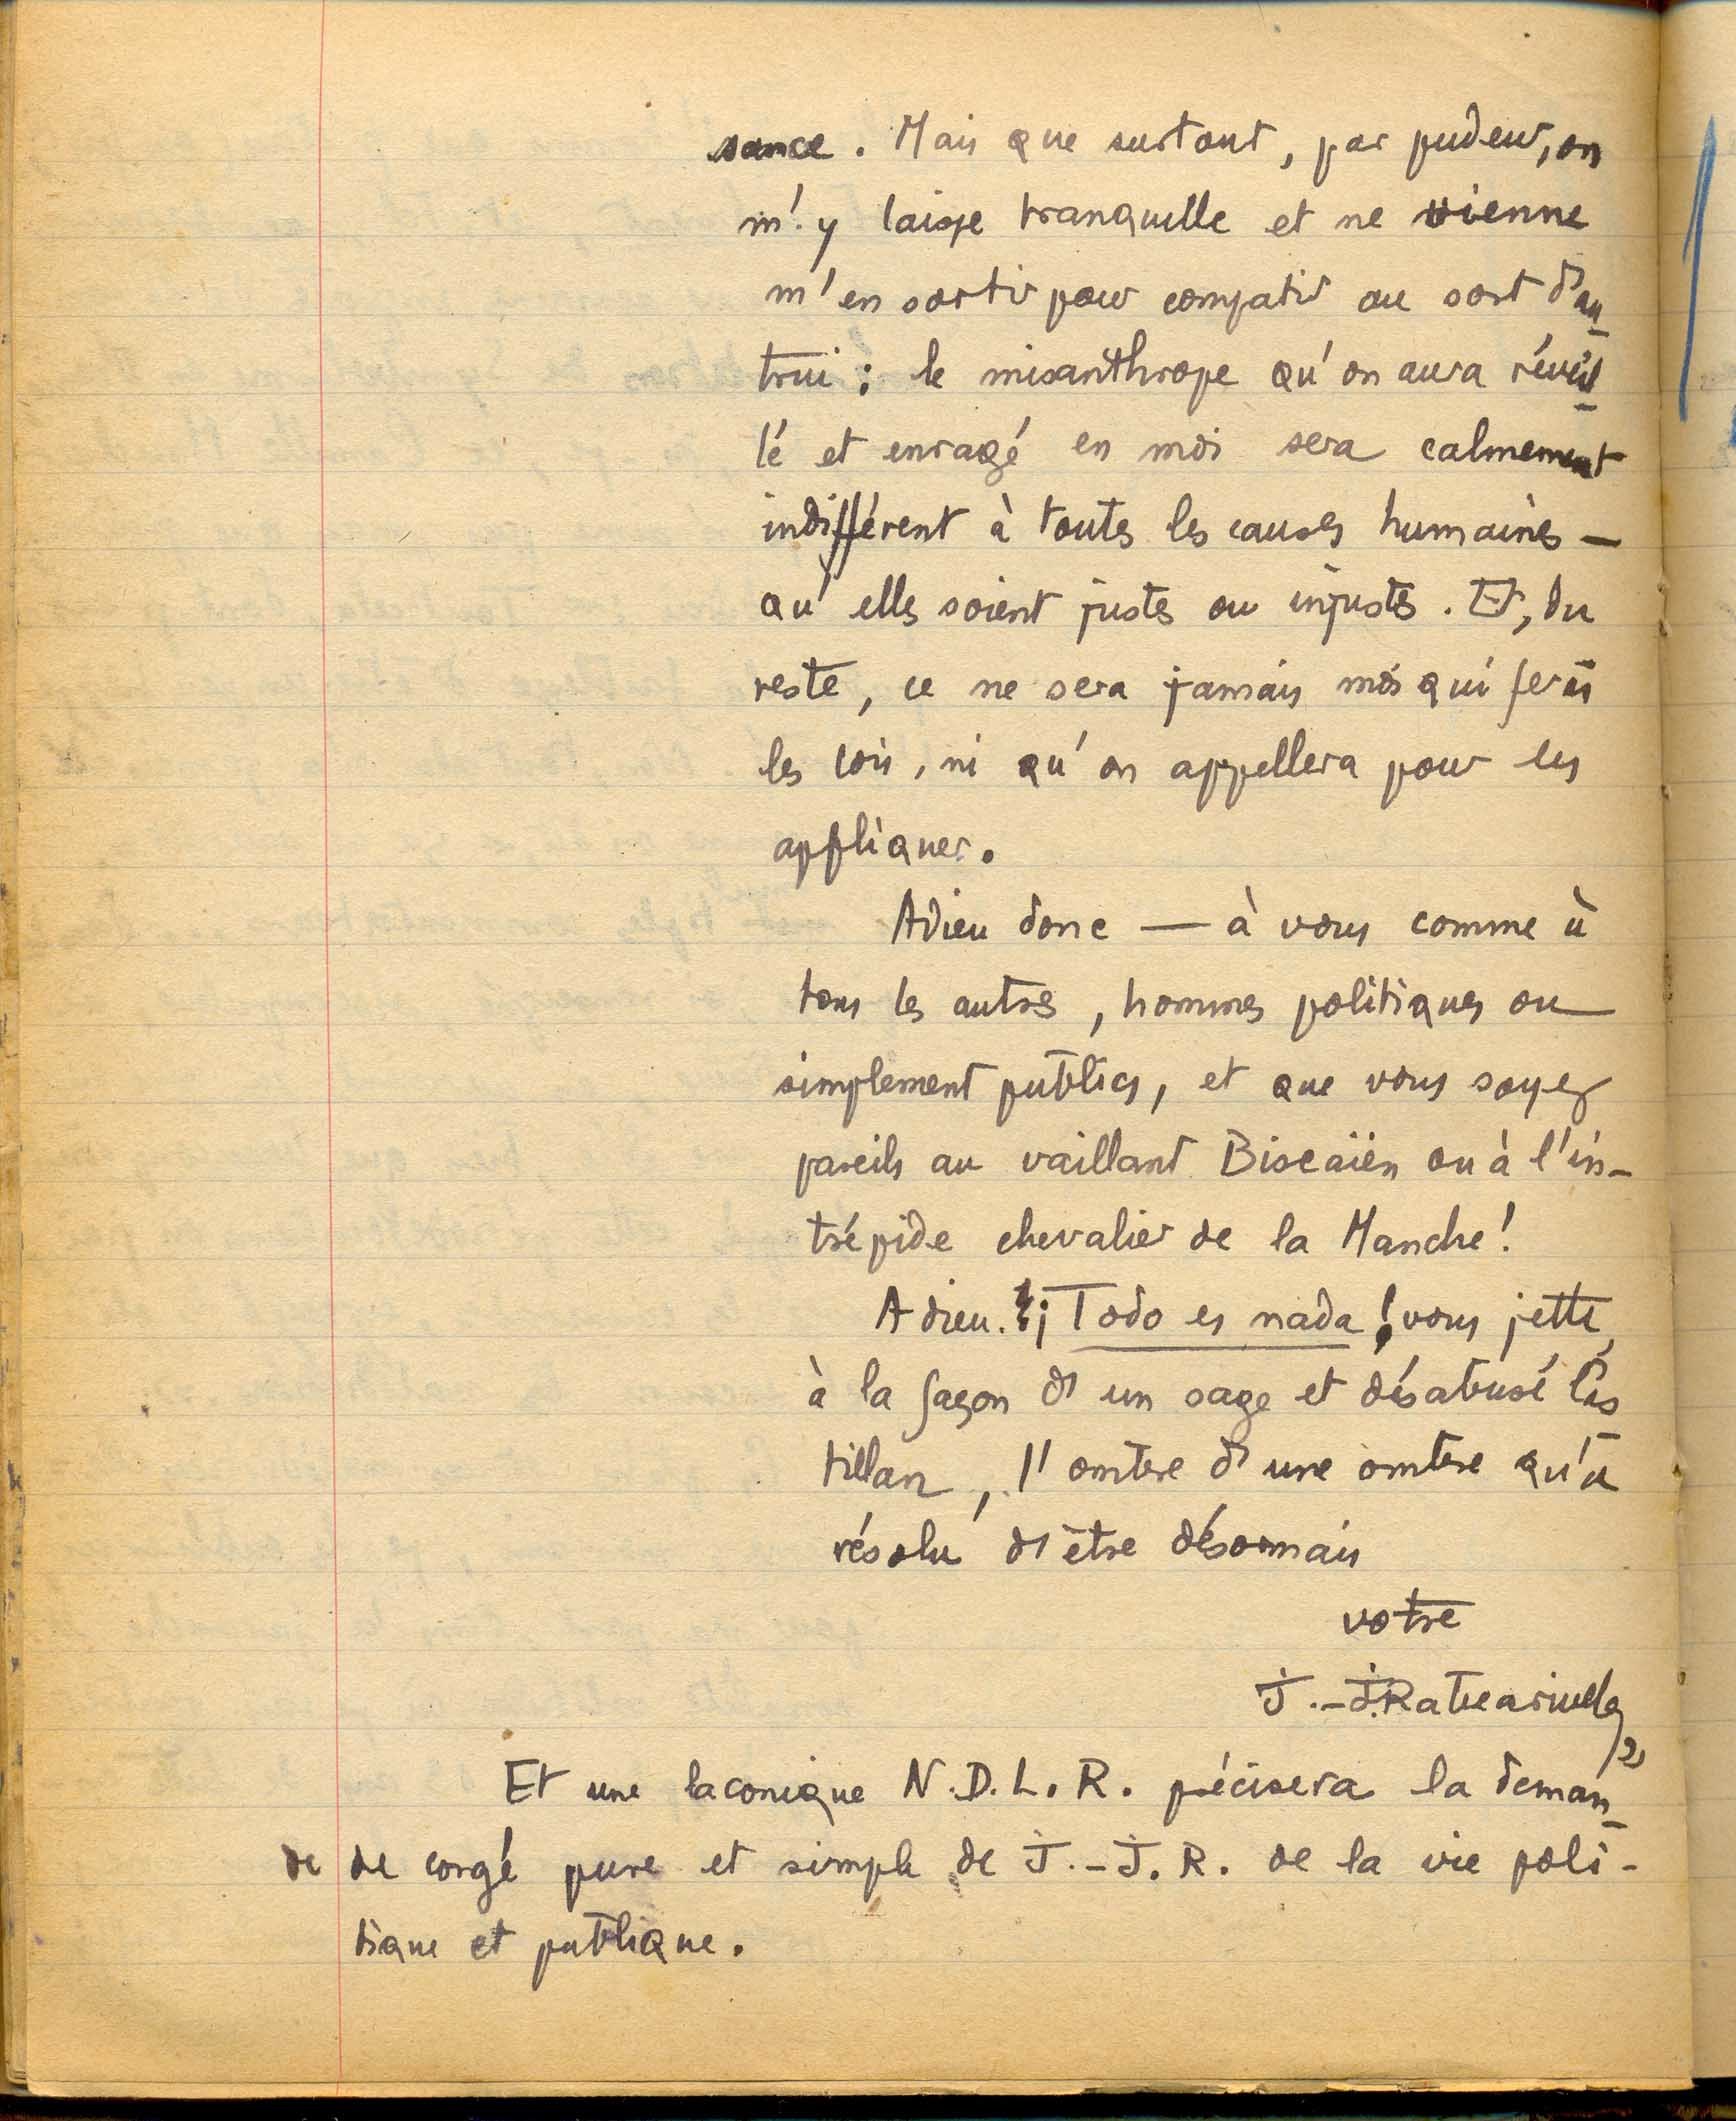 sance. Mais que surtout, par pudeur, on
m'y laisse tranquille et ne vienne
m'en sortir pour compatir au sort d'au-
trui : le misanthrope qu'on aura réveil-
lé et enragé en moi sera calmement
indifférent à toutes les causes humaines —
qu'elles soient justes ou injustes. Et, du
reste, ce ne sera jamais moi qui ferai
les lois, ni qu'on appellera pour les
appliquer.
Adieu donc — à vous comme à
tous les autres, hommes politiques ou
simplement publics, et que vous soyez
pareils au vaillant Biscaïen ou à l'in-
trépide chevalier de la Manche !
Adieu. ¡Todo es nada! vous jette,
à la façon d'un sage et désabusé Cas-
tillan, l'ombre d'une ombre qu'a
résolu d'être désormais
votre
J.-J. Rabearivelo
Et une laconique N.D.L.R. précisera la deman-
de de congé pure et simple de J.-J. R. de la vie poli-
tique et publique.